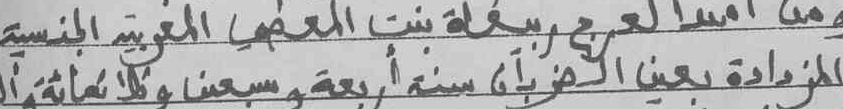 و من امينة لعرج ربيعة بنت المعطي المغربية الجنسية
المزدادة بعين الضربان سنة أربعة وسبعين وثلاثمائة وأ